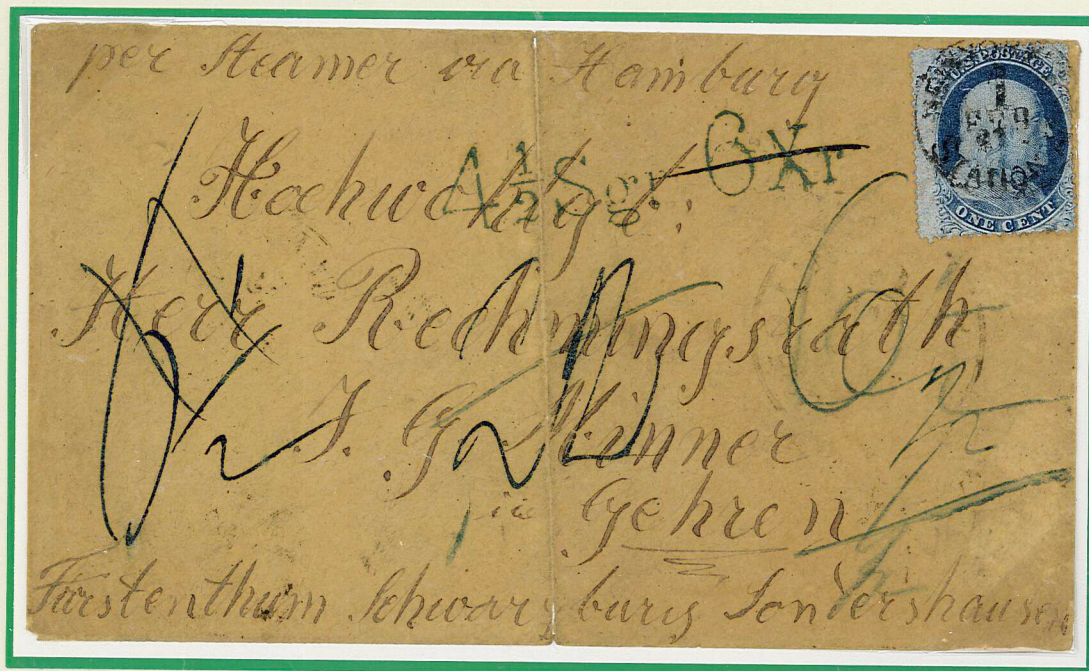 per Steamer via Hamburg
U.S. POSTAGE
ONE CENT
STATION
4½ Sgr.
6Xr
Herr Rechnungsrath
J. G. Minner
in Gehren
Fürstenthum Schwarzburg Sondershausen